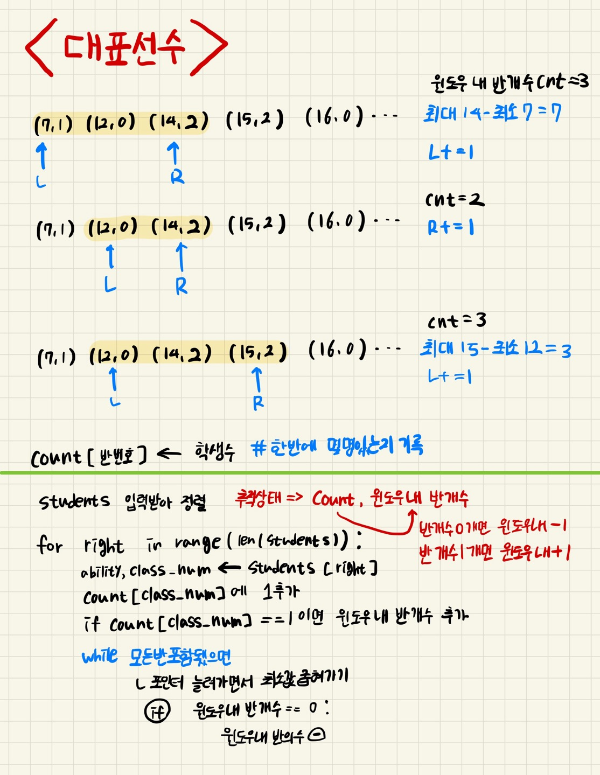 <대표선수>
윈도우 내 반개수 cnt = 3
(7,1) (12,0) (14,2) (15,2) (16.0) ...
최대 14 - 최소 7 = 7
L += 1
L R
cnt = 2
(7,1) (12,0) (14,2) (15,2) (16.0) ...
R += 1
L R
cnt = 3
(7,1) (12,0) (14,2) (15,2) (16.0) ...
최대 15 - 최소 12 = 3
L += 1
L R
count [반번호] ← 학생수 # 한반에 몇명있는지 기록
students 입력받아 정렬 추적상태 => Count, 윈도우내 반개수
반개수 0개면 윈도우내 -1
반 개수 1개면 윈도우내 +1
for right in range (len(students)) :
ability, class_num ← students [right]
count [class_num] 에 1추가
if count [class_num] == 1 이면 윈도우내 반개수 추가
while 모든반 포함됐으면
L 포인터 늘려가면서 최소값 좁혀가기
if 윈도우내 반개수 == 0 :
윈도우내 반의수 -